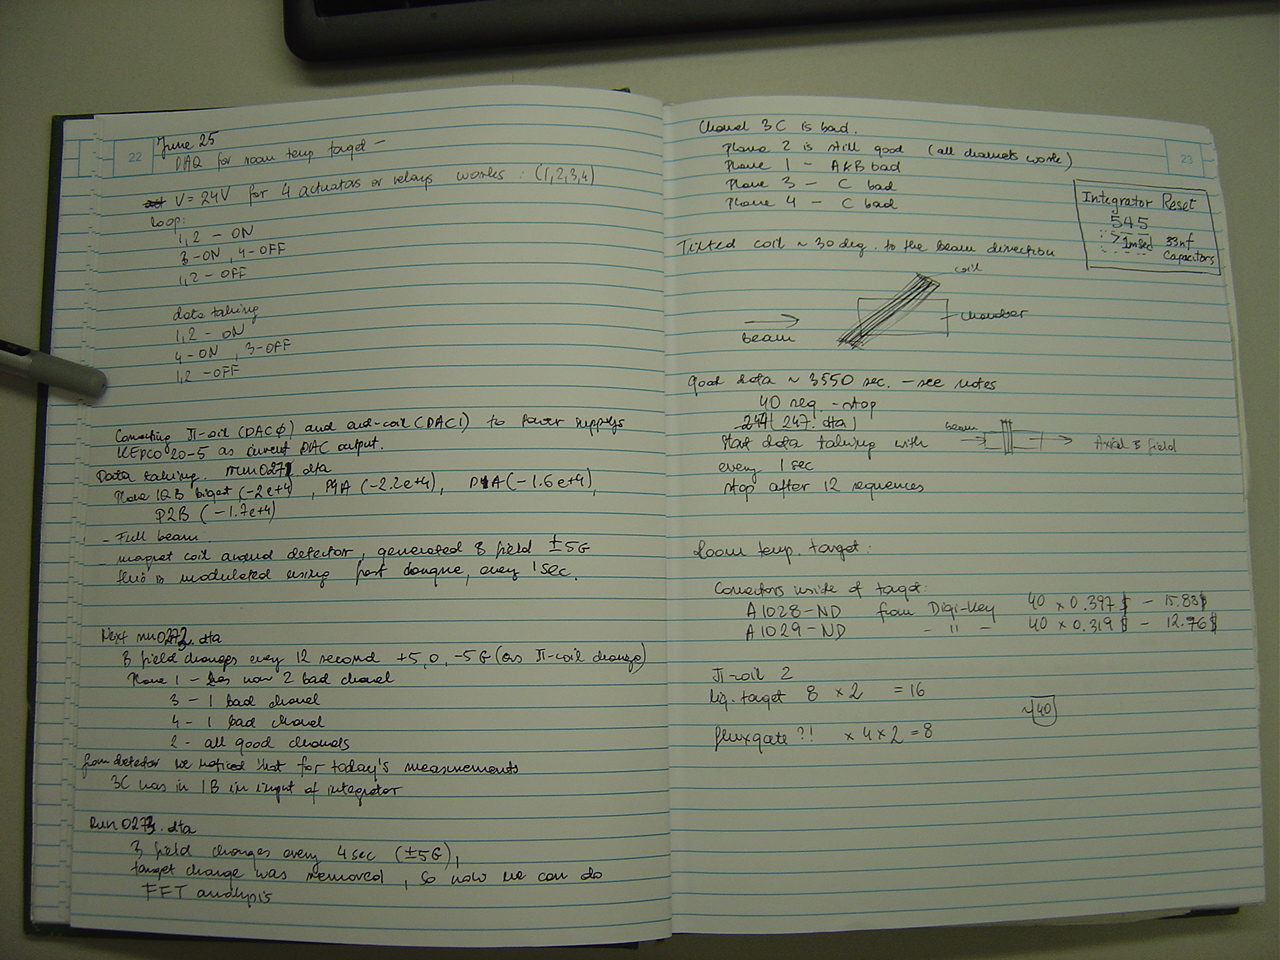 22
June 25
DAQ for room temp target -
V = 24V for 4 actuators or relays works : (1,2,3,4)
loop:
1,2 - ON
3-ON, 4-OFF
1,2 - OFF
data taking
1,2 - ON
4-ON, 3-OFF
1,2 - OFF
Connecting π-coil (DACφ) and aux-coil (DAC1) to Power supplys
KEPCO 20-5 as current DAC output.
Data taking. run0271.dta
Plane 1&B bigest (-2e+4), P4A (-2.2e+4), P1A (-1.6e+4),
P2B (-1.7e+4)
- Full beam.
- magnet coil around detector, generated B field ±5G
this is modulated using fast dongue, every 1 sec.
Next run0272.dta
B field changes every 12 second +5, 0, -5G (as π-coil change)
Plane 1 - has now 2 bad channel
3 - 1 bad channel
4 - 1 bad channel
2 - all good channels
from detector we noticed that for today's measurements
3C was in 1B in input of integrator
Run0273.dta
B field changes every 4 sec (±5G),
target change was removed, so now we can do
FFT analysis
23
Channel 3C is bad.
Plane 2 is still good (all channels work)
Plane 1 - A&B bad
Plane 3 - C bad
Plane 4 - C bad
Integrator Reset
545
> 1msec 33nf
Capacitors
Tilted coil ~ 30 deg. to the beam direction
coil
chamber
beam
good data ~ 3550 sec. - see notes
40 seq. - stop
247.dta)
Start data taking with
every 1 sec
stop after 12 sequences
beam
Axial B field
Room temp. target:
Connectors inside of target:
A1028-ND from Digi-Key 40 x 0.397$ - 15.88$
A1029-ND - " - 40 x 0.319$ - 12.76$
π-coil 2
liq. target 8 x 2 = 16
~40
fluxgate?! x 4 x 2 = 8